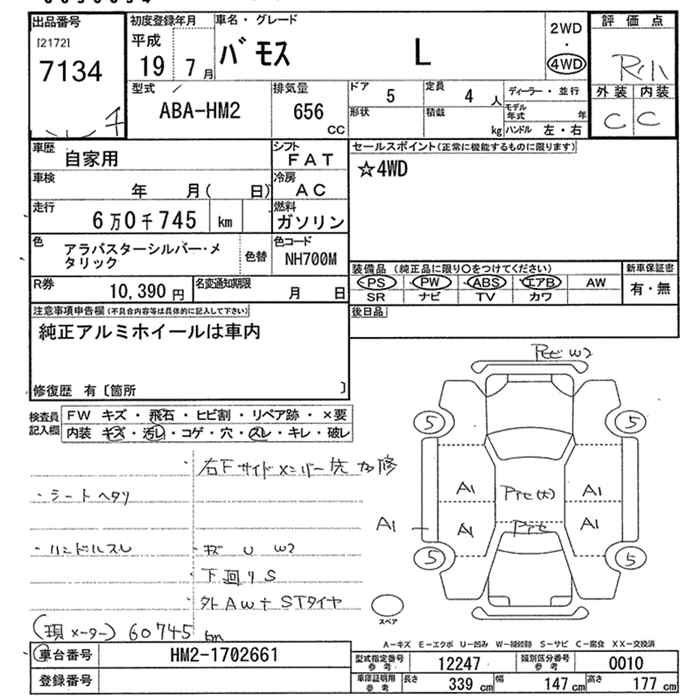 出品番号
[2172]
7134
初度登録年月
平成
19 7月
車名・グレード
バモス L
2WD
・
4WD
評価点
外装 内装
C C
型式
ABA-HM2
排気量
656
CC
ドア 5
定員 4人
形状
積載 kg
ディーラー・並行
モデル年式 年
ハンドル 左・右
車歴
自家用
シフト
F A T
車検
年 月( 日)
冷房
A C
走行
6万0千745 km
燃料
ガソリン
色
アラバスターシルバー・メ
タリック
色替
色コード
NH700M
R券
10,390円
名変通知期限
月 日
セールスポイント(正常に機能するものに限ります)
☆4WD
装備品 (純正品に限り○をつけてください)
PS PW ABS エアB AW
SR ナビ TV カワ
新車保証書
有・無
後日品
注意事項申告欄(不具合内容等は具体的に記入して下さい)
純正アルミホイールは車内
修復歴 有〔箇所 〕
検査員
記入欄
FW キズ・飛石・ヒビ割・リペア跡・×要
内装 キズ・汚レ・コゲ・穴・スレ・キレ・破レ
右下サイドメンバー
・シートヘタリ
・ハンドルスレ
・キズ U W2
下回りS
タトAW+STタイヤ
(現メーター) 60745 km
W2
5 5
A1 A1
A1 A1 A1
5 5
スペア
A-キズ E-エクボ U-凹み W-補修跡 S-サビ C-腐食 XX-交換済
車台番号
HM2-1702661
登録番号
型式指定番号
参考
12247
類別区分番号
参考
0010
車庫証明用
参考
長さ 339 cm
幅 147 cm
高さ 177 cm